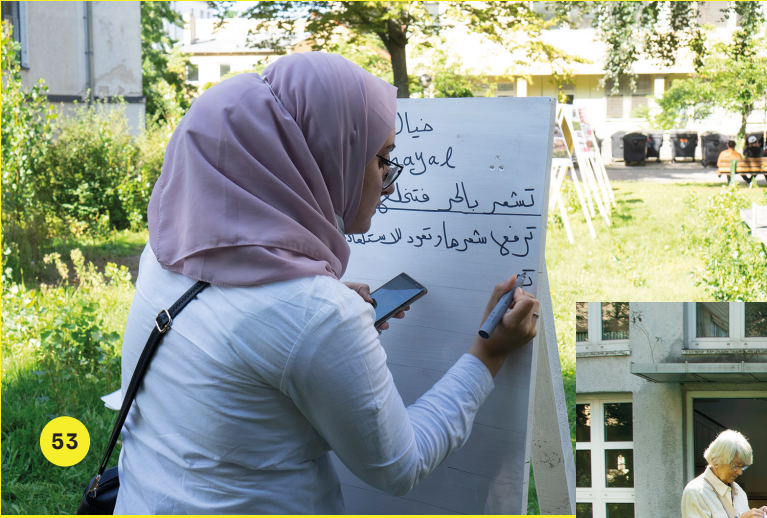 خيال
hayal
تشعر بالحر فتخلع
ترفع شعرها وتعود للاستلقاء
ت
53